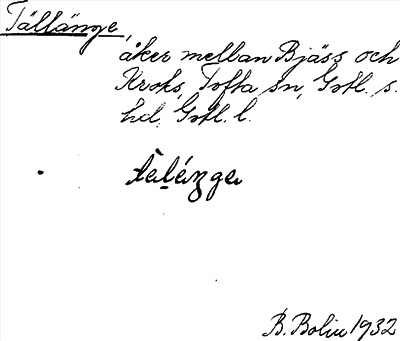 Tällänge,
åker mellan Bjäss och
Kroks, Tofta sn, Gotl. s.
hd, Gotl. l.
B. Bolin 1932